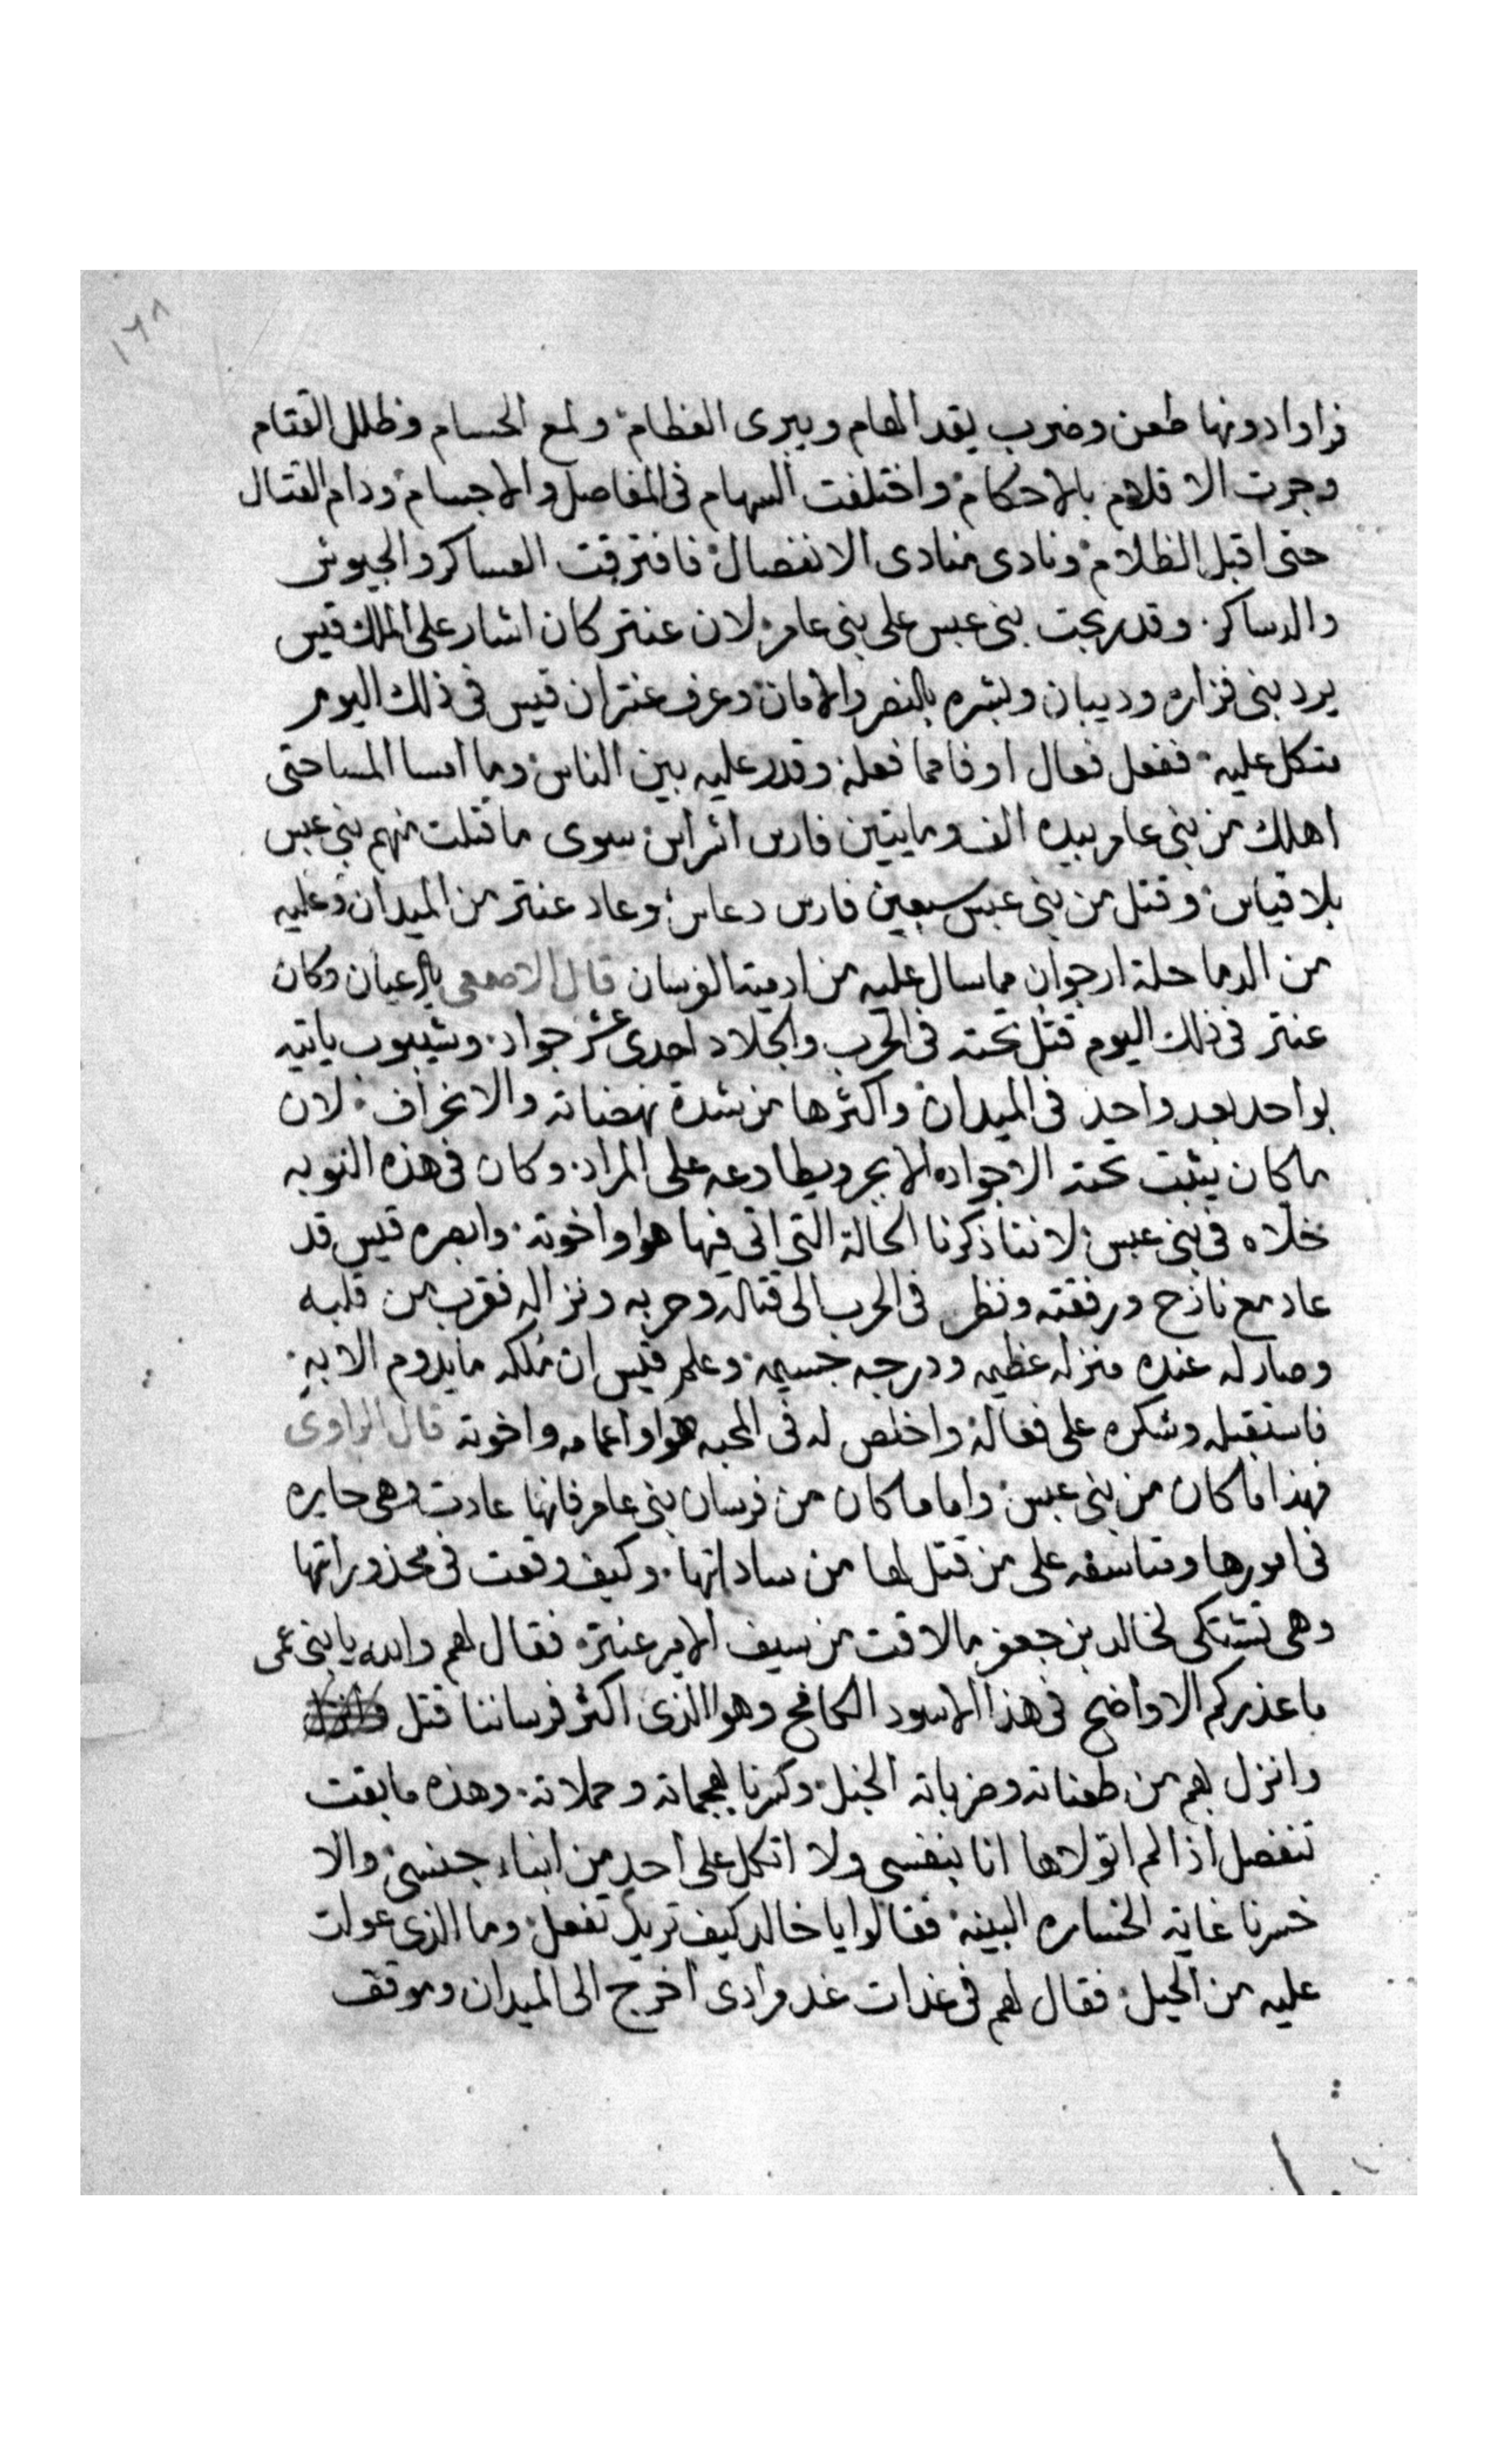 ١٦٨
فراوا دونها طعن وضرب يقد الهام ويبرى العظام ولمع الحسام وظلل القتام
وجرت الاقلام بالاحكام واختلفت السهام فى المفاصل والاجسام ودام القتال
حتى اقبل الظلام ونادى منادى الانفصال فافترقت العساكر والجيوش
والدساكر وقد ربحت بنى عبس على بنى عامر لان عنتر كان اشار على الملك قيس
يرد بنى فزاره وديبان وبشره بالنصر والامان وعرف عنتر ان قيس فى ذلك اليوم
متكل عليه ففعل فعال اوفا مما فعله وقدر عليه بين الناس وما امسا المسا حتى
اهلك من بنى عامر بيده الف ومايتين فارس اشراس سوى ما قتلت منهم بنى عبس
بلا قياس وقتل من بنى عبس سبعين فارس دعاس وعاد عنتر من الميدان وعليه
من الدما حلة ارجوان مما سال عليه من ادمية الفرسان قال الاصمعى بالاعيان وكان
عنتر فى ذلك اليوم قتل تحته فى الحرب والجلاد احدى عشر جواد وشيبوب ياتيه
بواحد بعد واحد فى الميدان واكثرها من شدة نهضاته والانحراف لان
ما كان يثبت تحته الا جواده الابجر ويطاوعه على المراد وكان فى هذه النوبه
خلاه فى بنى عبس لاننا ذكرنا الحالة التى اتى فيها هوا واخوته وابصره قيس قد
عاد مع نازح ورفقته ونظر فى الحرب الى قتاله وحربه ونزاله فقرب من قلبه
وصار له عنده منزله عظيمه ودرجه جسيمه وعلم قيس ان ملكه ما يدوم الا به
فاستقبله وشكره على فعاله واخلص له فى المحبه هوا واعمامه واخوته قال الراوى
فهذا ما كان من بنى عبس واما ما كان من فرسان بنى عامر فانها عادت وهى حايره
فى امورها ومتاسفه على من قتل لها من ساداتها وكيف وقعت فى محذوراتها
وهى تشتكى لخالد بن جعفر ما لاقت من سيف الامير عنتره فقال لهم والله يا بنى عمى
ما عذركم الا واضح فى هذا الاسود الكافح وهوا الذى اكثر فرساننا قتل
وانزل بهم من طعناته وضرباته الخبل وكسرنا بهجماته وحملاته وهذه ما بقت
تنفصل اذا لم اتولاها انا بنفسى ولا اتكل على احد من ابناء جنسى والا
خسرنا غاية الخساره البينه فقالوا يا خالد كيف تريد تفعل وما الذى عولت
عليه من الحيل فقال لهم فى غدات غد مرادى اخرج الى الميدان وموقف